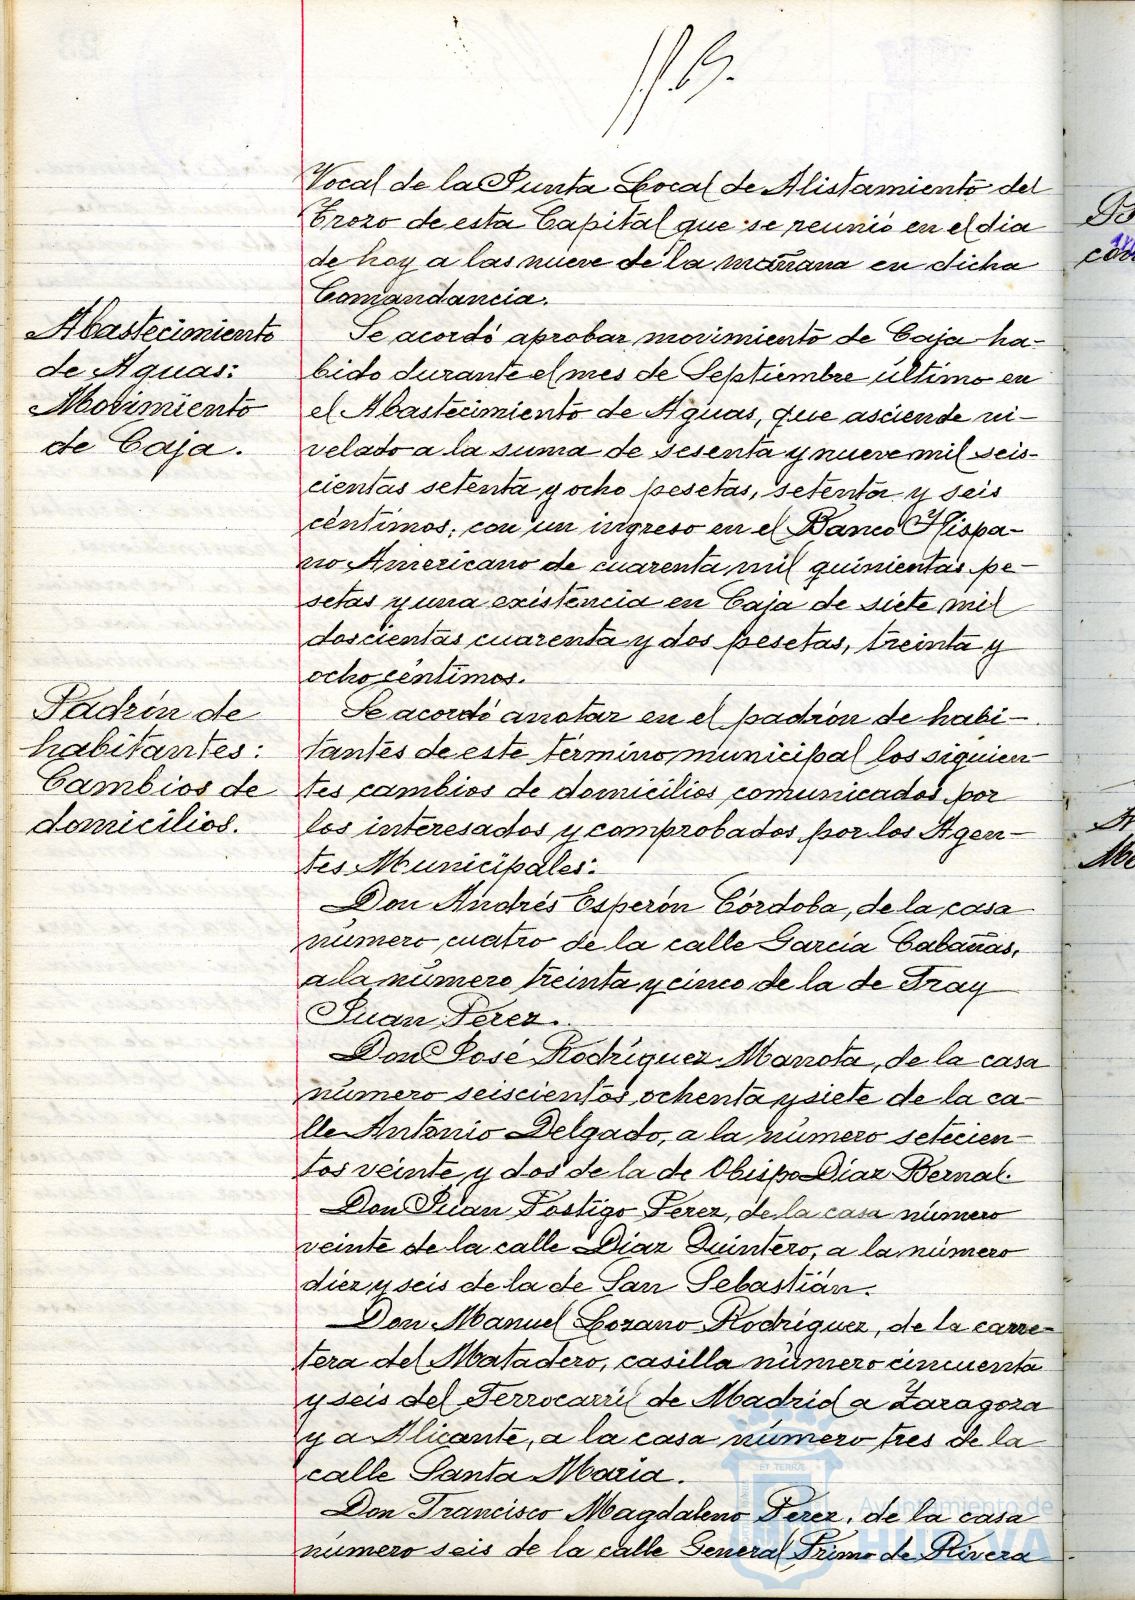 Vocal de la Junta Local de Alistamiento del
Trozo de esta Capital que se reunió en el dia
de hoy a las nueve de la mañana en dicha
Comandancia.
Abastecimiento
de Aguas:
Movimiento
de Caja.
Se acordó aprobar movimiento de Caja ha-
bido durante el mes de Septiembre último en
el Abastecimiento de Aguas, que asciende ni-
velado a la suma de sesenta y nueve mil seis-
cientas setenta y ocho pesetas, setenta y seis
céntimos; con un ingreso en el Banco Hispa-
no Americano de cuarenta mil quinientas pe-
setas y una existencia en Caja de siete mil
doscientas cuarenta y dos pesetas, treinta y
ocho céntimos.
Padrón de
habitantes:
Cambios de
domicilios.
Se acordó anotar en el padrón de habi-
tantes de este término municipal los siguien-
tes cambios de domicilios comunicados por
los interesados y comprobados por los Agen-
tes Municipales:
Don Andrés Esperón Córdoba, de la casa
número cuatro de la calle García Cabañas,
a la número treinta y cinco de la de Fray
Juan Pérez.
Don José Rodríguez Manota, de la casa
número seiscientos ochenta y siete de la ca-
lle Antonio Delgado, a la número setecien-
tos veinte y dos de la de Obispo Díaz Bernal.
Don Juan Postigo Perez, de la casa número
veinte de la calle Diaz Quintero, a la número
diez y seis de la de San Sebastián.
Don Manuel Lozano Rodríguez, de la carre-
tera del Matadero, casilla número cincuenta
y seis del Ferrocarril de Madrid a Zaragoza
y a Alicante, a la casa número tres de la
calle Santa Maria.
Don Francisco Magdaleno Perez, de la casa
número seis de la calle General Primo de Rivera
Ayuntamiento de
HUELVA